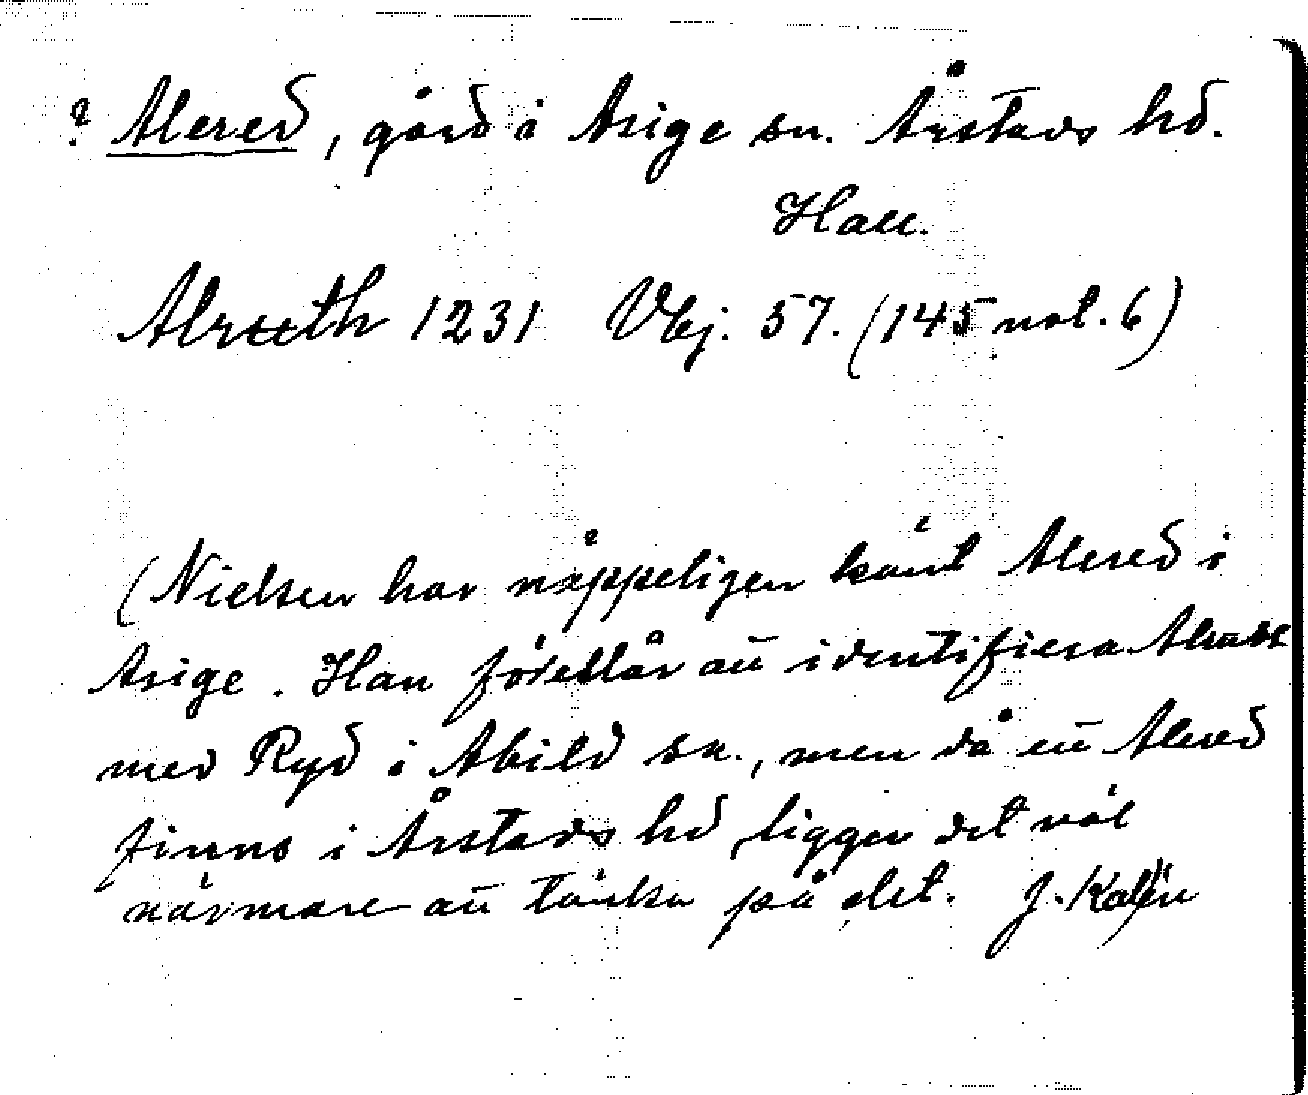 ? Alered, gård i Asige sn. Årstads hd.
Hall.
Alrueth 1231 VBj. 57. (145 not. 6)
(Nielsen har näppeligen känt Alered i
Asige. Han föreslår att identifiera
med Ryd i Abild sn., men då ett Alered
finns i Årstads hd, ligger det väl
närmare att tänka på det. J. Kalén)